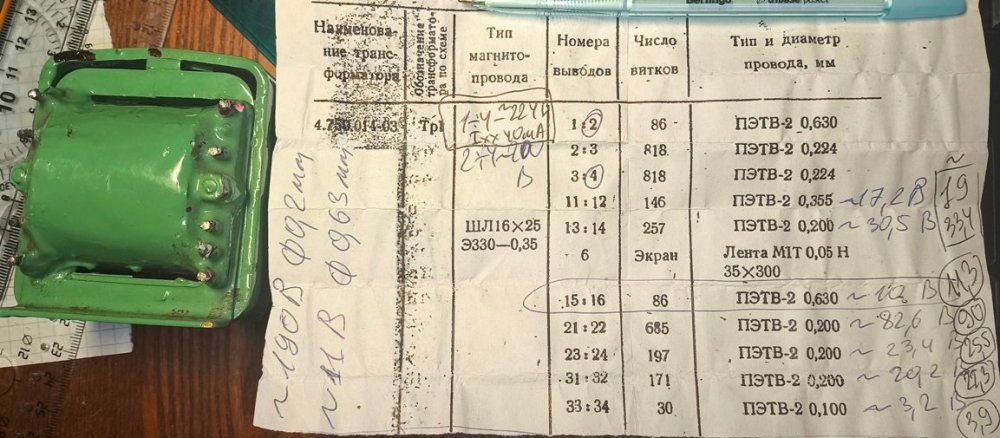 Berlingo
Наименова-
ние транс-
форматора
Обозначение
трансформато-
ра по схеме
Тип
магнито-
провода
Номера
выводов
Число
витков
Тип и диаметр
провода, мм
4.730.014-03 Тр1 1:2 86 ПЭТВ-2 0,630
1÷4 ~224В
Iхх 40mA
В
2:3 818 ПЭТВ-2 0,224
3:4 818 ПЭТВ-2 0,224
11:12 146 ПЭТВ-2 0,355 ~17,2 В 19
ШЛ16×25 13:14 257 ПЭТВ-2 0,200 ~30,5 В 33,4
Э330—0,35
6 Экран Лента М1Т 0,05 Н
35×300
15:16 86 ПЭТВ-2 0,630 ~10,2 В 11,3
21:22 685 ПЭТВ-2 0,200 ~82,6 В 90
23:24 197 ПЭТВ-2 0,200 ~23,4 В 25,5
31:32 171 ПЭТВ-2 0,200 ~20,2 В 22,3
33:34 30 ПЭТВ-2 0,100 ~3,2 В 3,9
~190В Ф0,2мм
~11В Ф0,63мм
10
11
12